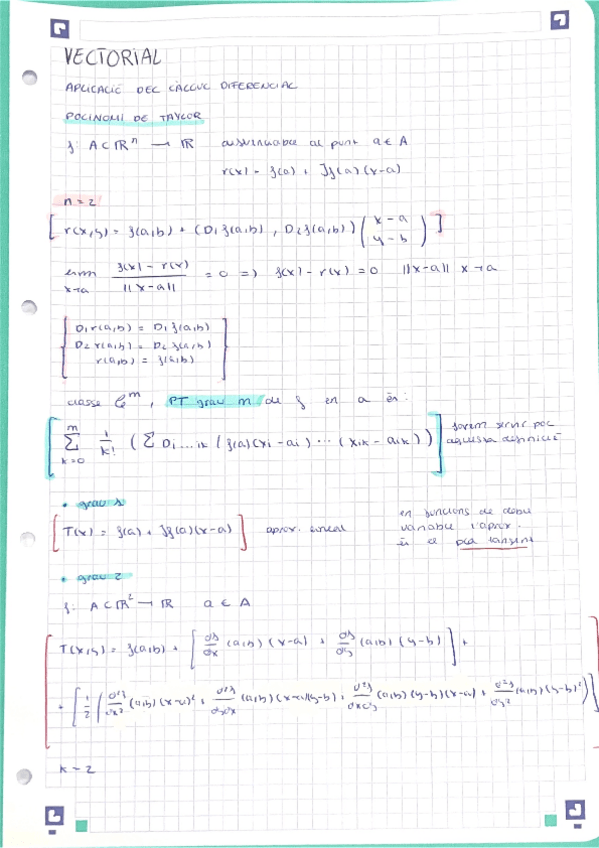 VECTORIAL
APLICACIÓ DEL CÀLCUL DIFERENCIAL
POLINOMI DE TAYLOR
f: A ⊂ ℝⁿ → ℝ al punt a ∈ A
r(x) = f(a) + Jf(a)(x-a)
n = 2
[ r(x,y) = f(a,b) + (D₁f(a,b), D₂f(a,b)) (x-a y-b) ]
lim x→a (f(x) - r(x)) / ||x-a|| = 0 => f(x) - r(x) = 0 ||x-a|| x→a
D₁r(a,b) = D₁f(a,b)
D₂r(a,b) = D₂f(a,b)
r(a,b) = f(a,b)
classe 𝒞ᵐ, PT grau m de f en a és:
[ Σ k=0 m 1/k! (Σ Di...ik (f(a)(xi-ai) ... (xik-aik)) ] farem servir poc
aquesta definició
• grau 1
[ T(x) = f(a) + Jf(a)(x-a) ] aprox. lineal
en funcions de dues
variables l'aprox.
és el pla tangent
• grau 2
f: A ⊂ ℝ² → ℝ a ∈ A
T(x,y) = f(a,b) + [ ∂f/∂x (a,b)(x-a) + ∂f/∂y (a,b)(y-b) ] +
+ [ 1/2 ( ∂²f/∂x² (a,b)(x-a)² + ∂²f/∂y∂x (a,b)(x-a)(y-b) + ∂²f/∂x∂y (a,b)(y-b)(x-a) + ∂²f/∂y² (a,b)(y-b)² ) ]
k = 2